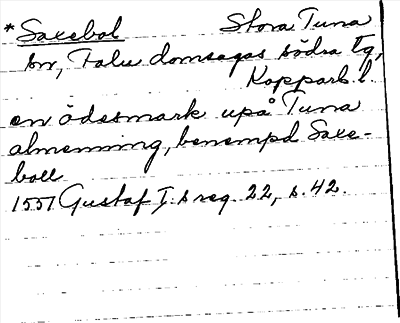 *Saxebol Stora Tuna
sn, Falu domsagas södra tg,
Kopparb. l.
en ödesmark upå Tuna
almenning, benempd Saxe-
boll
1551 Gustaf I:s reg. 22, s. 42.